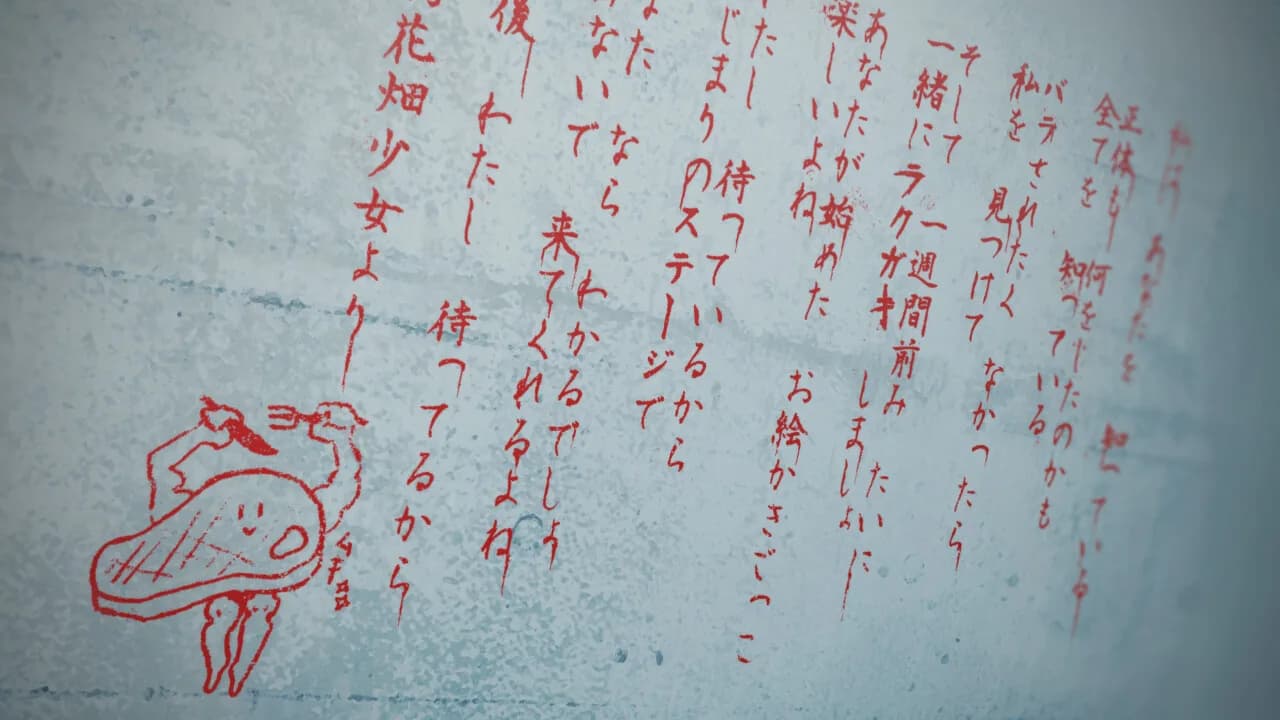 私は あなたを 知っている
正体も 何をしたのかも
全てを 知っている
バラされたく なかったら
私を 見つけて
そして 一週間前みたいに
一緒にラクガキ しましょ
あなたが始めた お絵かきごっこ
楽しいよね
たし 待っているから
じまりのステージで
なた なら わかるでしょう
ないで 来てくれるよね
後 わたし 待ってるから
花畑少女より